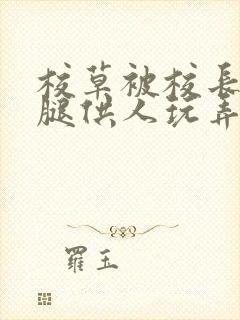 校草被校長
腿供人玩弄
羅玉